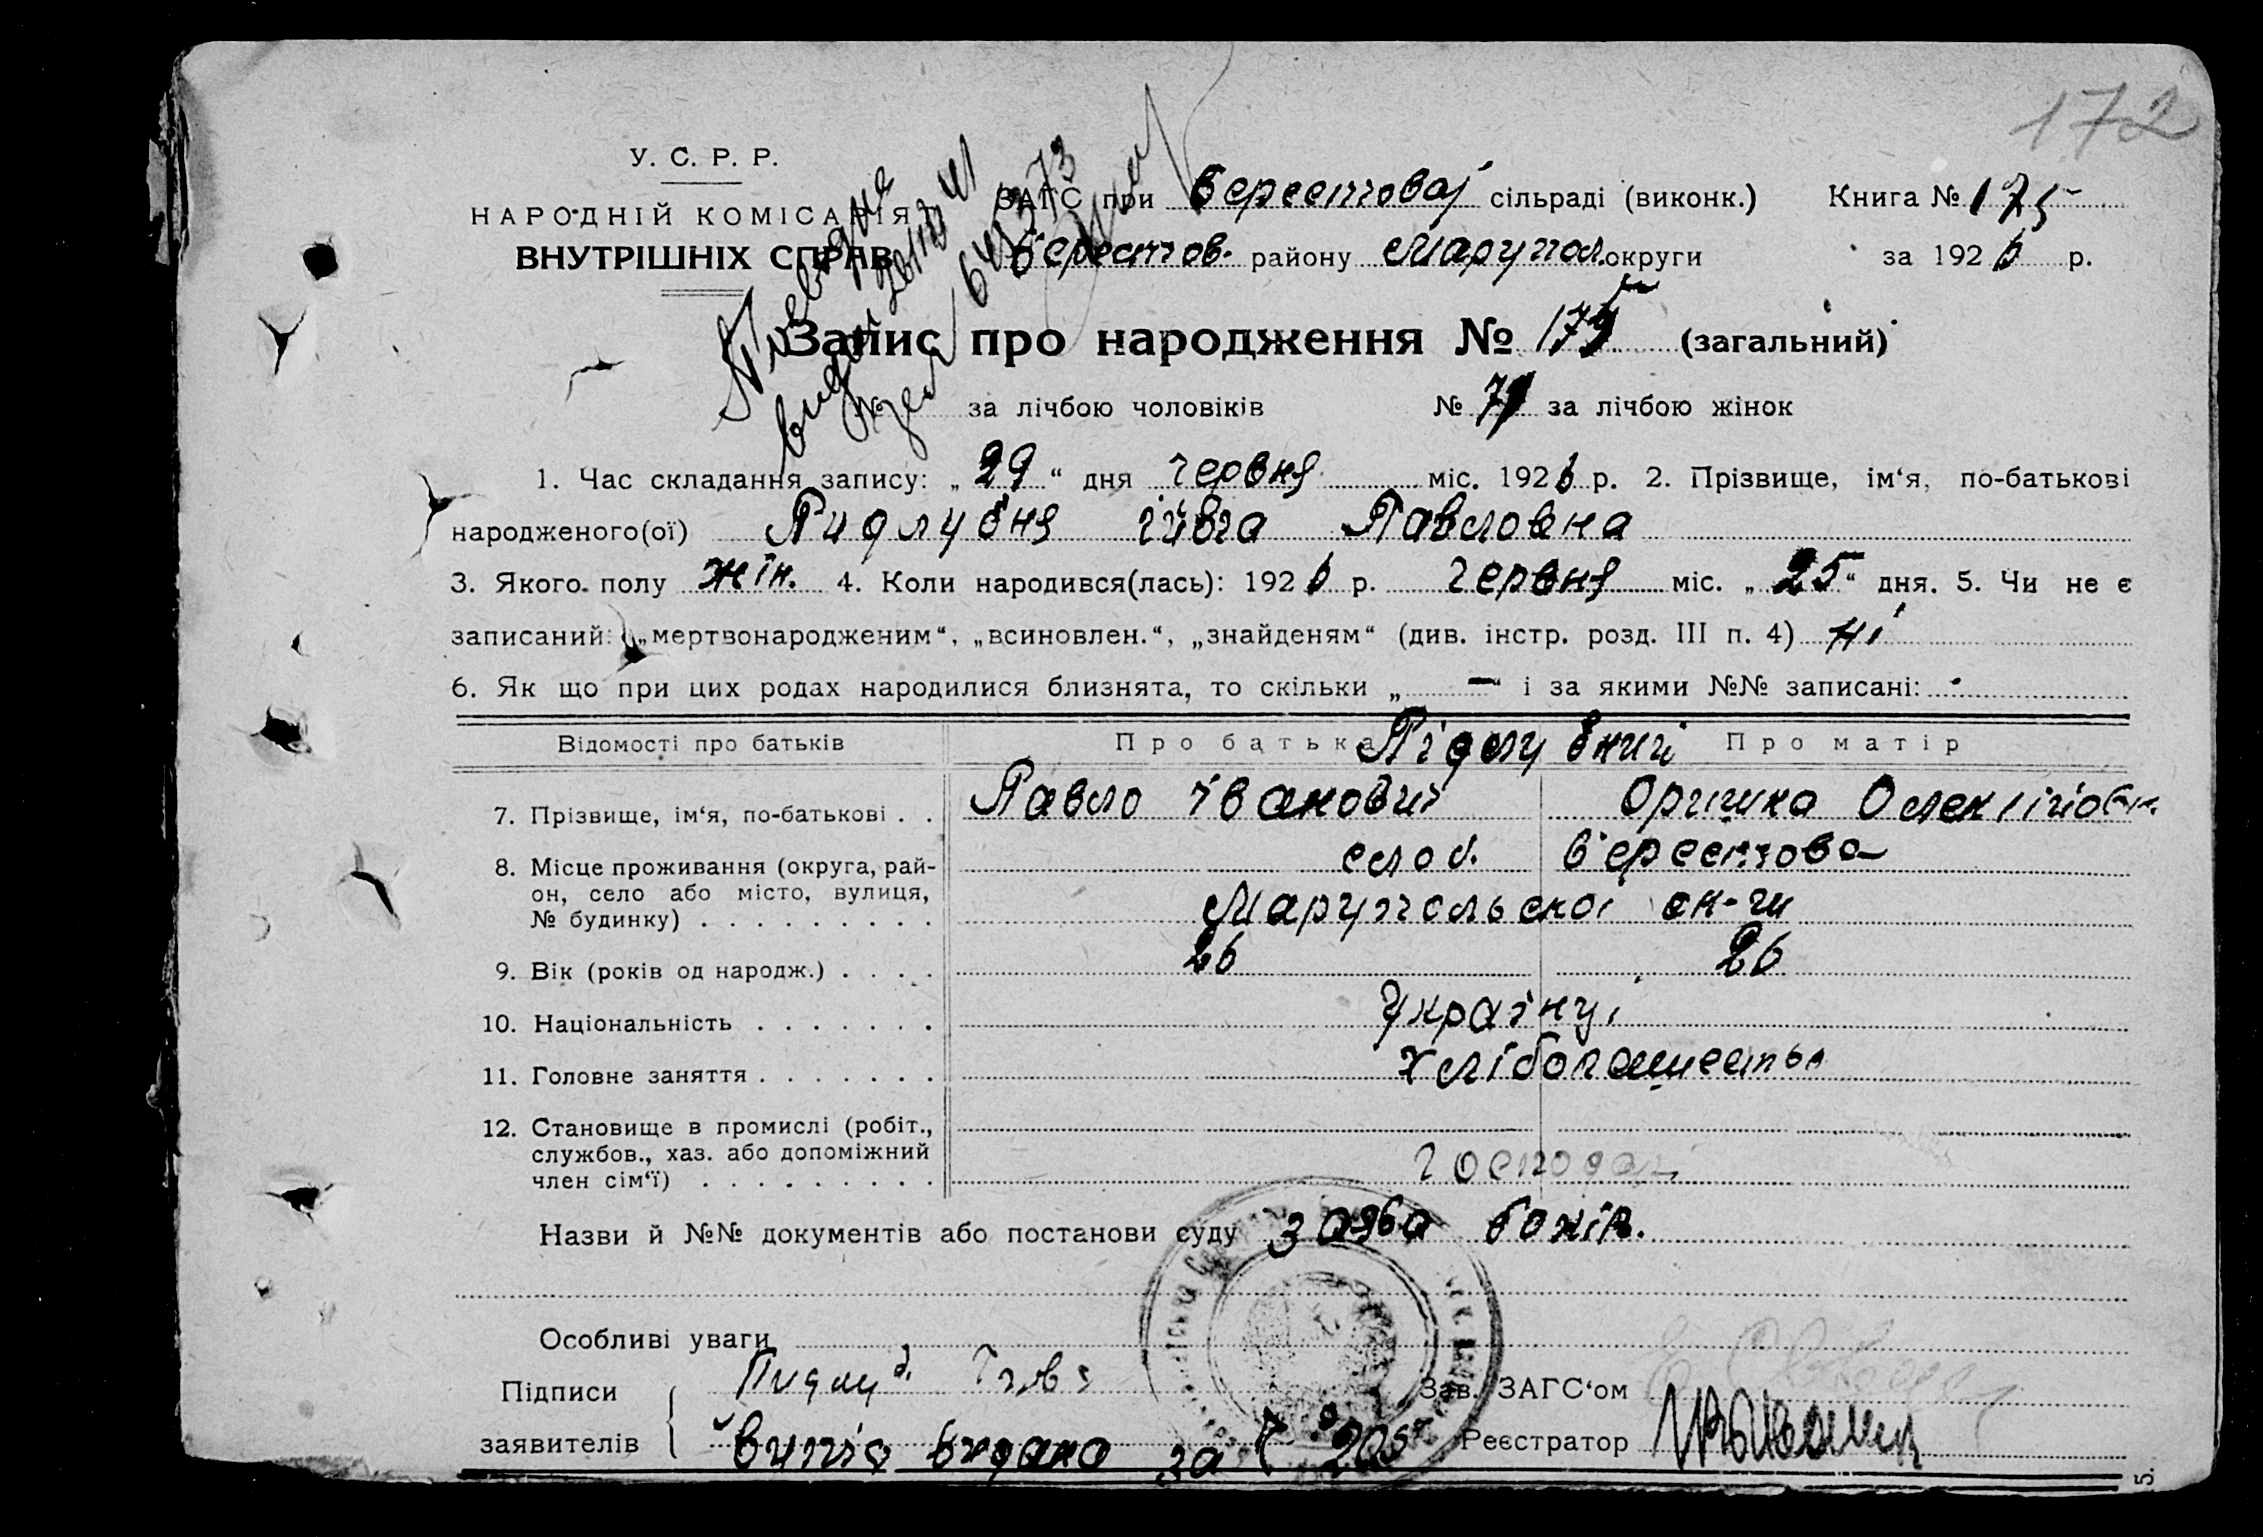 172
У. С. Р. Р.
НАРОДНІЙ КОМІСАРІЯТ
ВНУТРІШНІХ СПРАВ
ЗАГС при Берестовой сільраді (виконк.) Книга № 175
Берестов. району Марупол. округи за 1926 р.
Запис про народження № 175 (загальний)
№ за лічбою чоловіків № 79 за лічбою жінок
1. Час складання запису: „29“ дня червня міс. 1926 р. 2. Прізвище, ім‘я, по-батькові
народженого(ої) Пидлубня Івга Павловна
3. Якого полу жін. 4. Коли народився(лась): 1926 р. червня міс. „25“ дня. 5. Чи не є
записаний: „мертвонародженим“, „всиновлен.“, „знайденям“ (див. інстр. розд. III п. 4) ні
6. Як що при цих родах народилися близнята, то скільки „—“ і за якими №№ записані: -
Відомості про батьків Про батька Про матір
Підлубний
7. Прізвище, ім‘я, по-батькові . . Павло Іванович Оришка Олексіївн
8. Місце проживання (округа, рай-
он, село або місто, вулиця,
№ будинку) . . . . . . . . .
слоб. Берестова
Марупольскоі ок-ги
9. Вік (років од народж.) . . . . 26 26
10. Національність . . . . . . . Українці
11. Головне заняття . . . . . . . хліборашество
12. Становище в промислі (робіт.,
службов., хаз. або допоміжний
член сім‘ї) . . . . . . . . .
господар
Назви й №№ документів або постанови суду заява
Особливі уваги
Підписи Пидлуб.
заявителів видано за № 205
Зав. ЗАГС‘ом
Реєстратор
5.